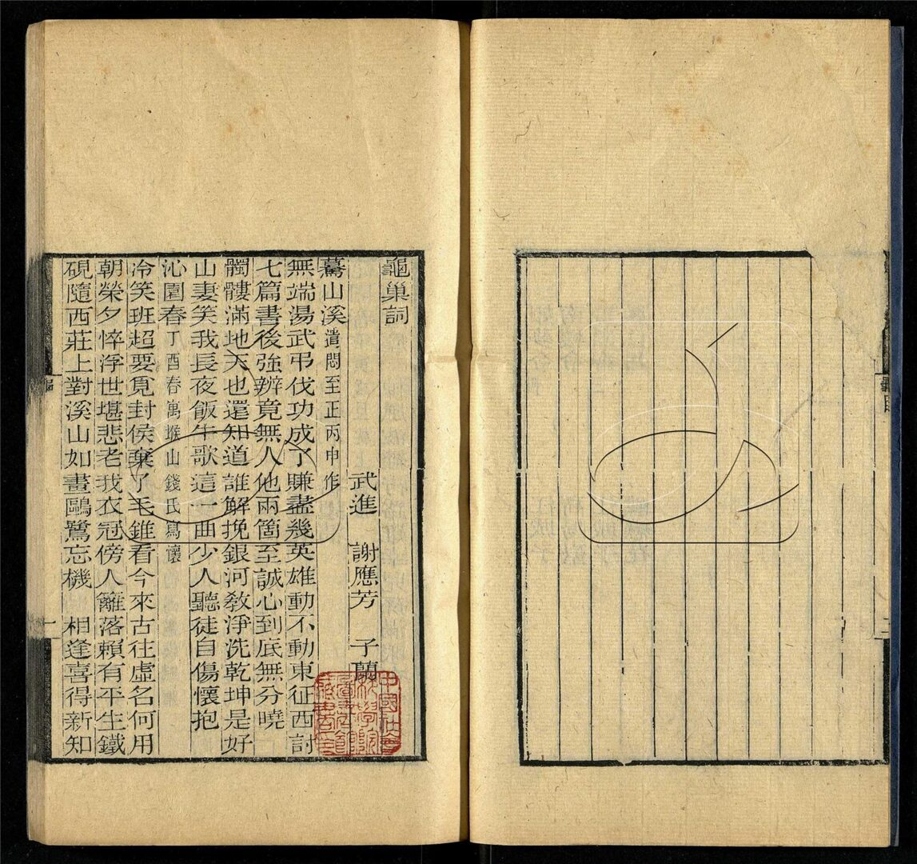 龜巢詞
武進 謝應芳 子蘭
驀山溪遣悶至正丙申作
無端湯武弔伐功成了賺盡幾英雄動不動東征西討
七篇書後強辨竟無人他兩箇至誠心到底無分曉
髑髏滿地天也還知道誰解挽銀河敎淨洗乾坤是好
山妻笑我長夜飯牛歌這一曲少人聽徒自傷懷抱
沁園春丁酉春寓堠山錢氏寫懷
冷笑班超要覓封侯棄了毛錐看今來古往虛名何用
朝榮夕悴浮世堪悲老我衣冠傍人籬落賴有平生鐵
硯隨西莊上對溪山如畫鷗鷺忘機 相逢喜得新知
一